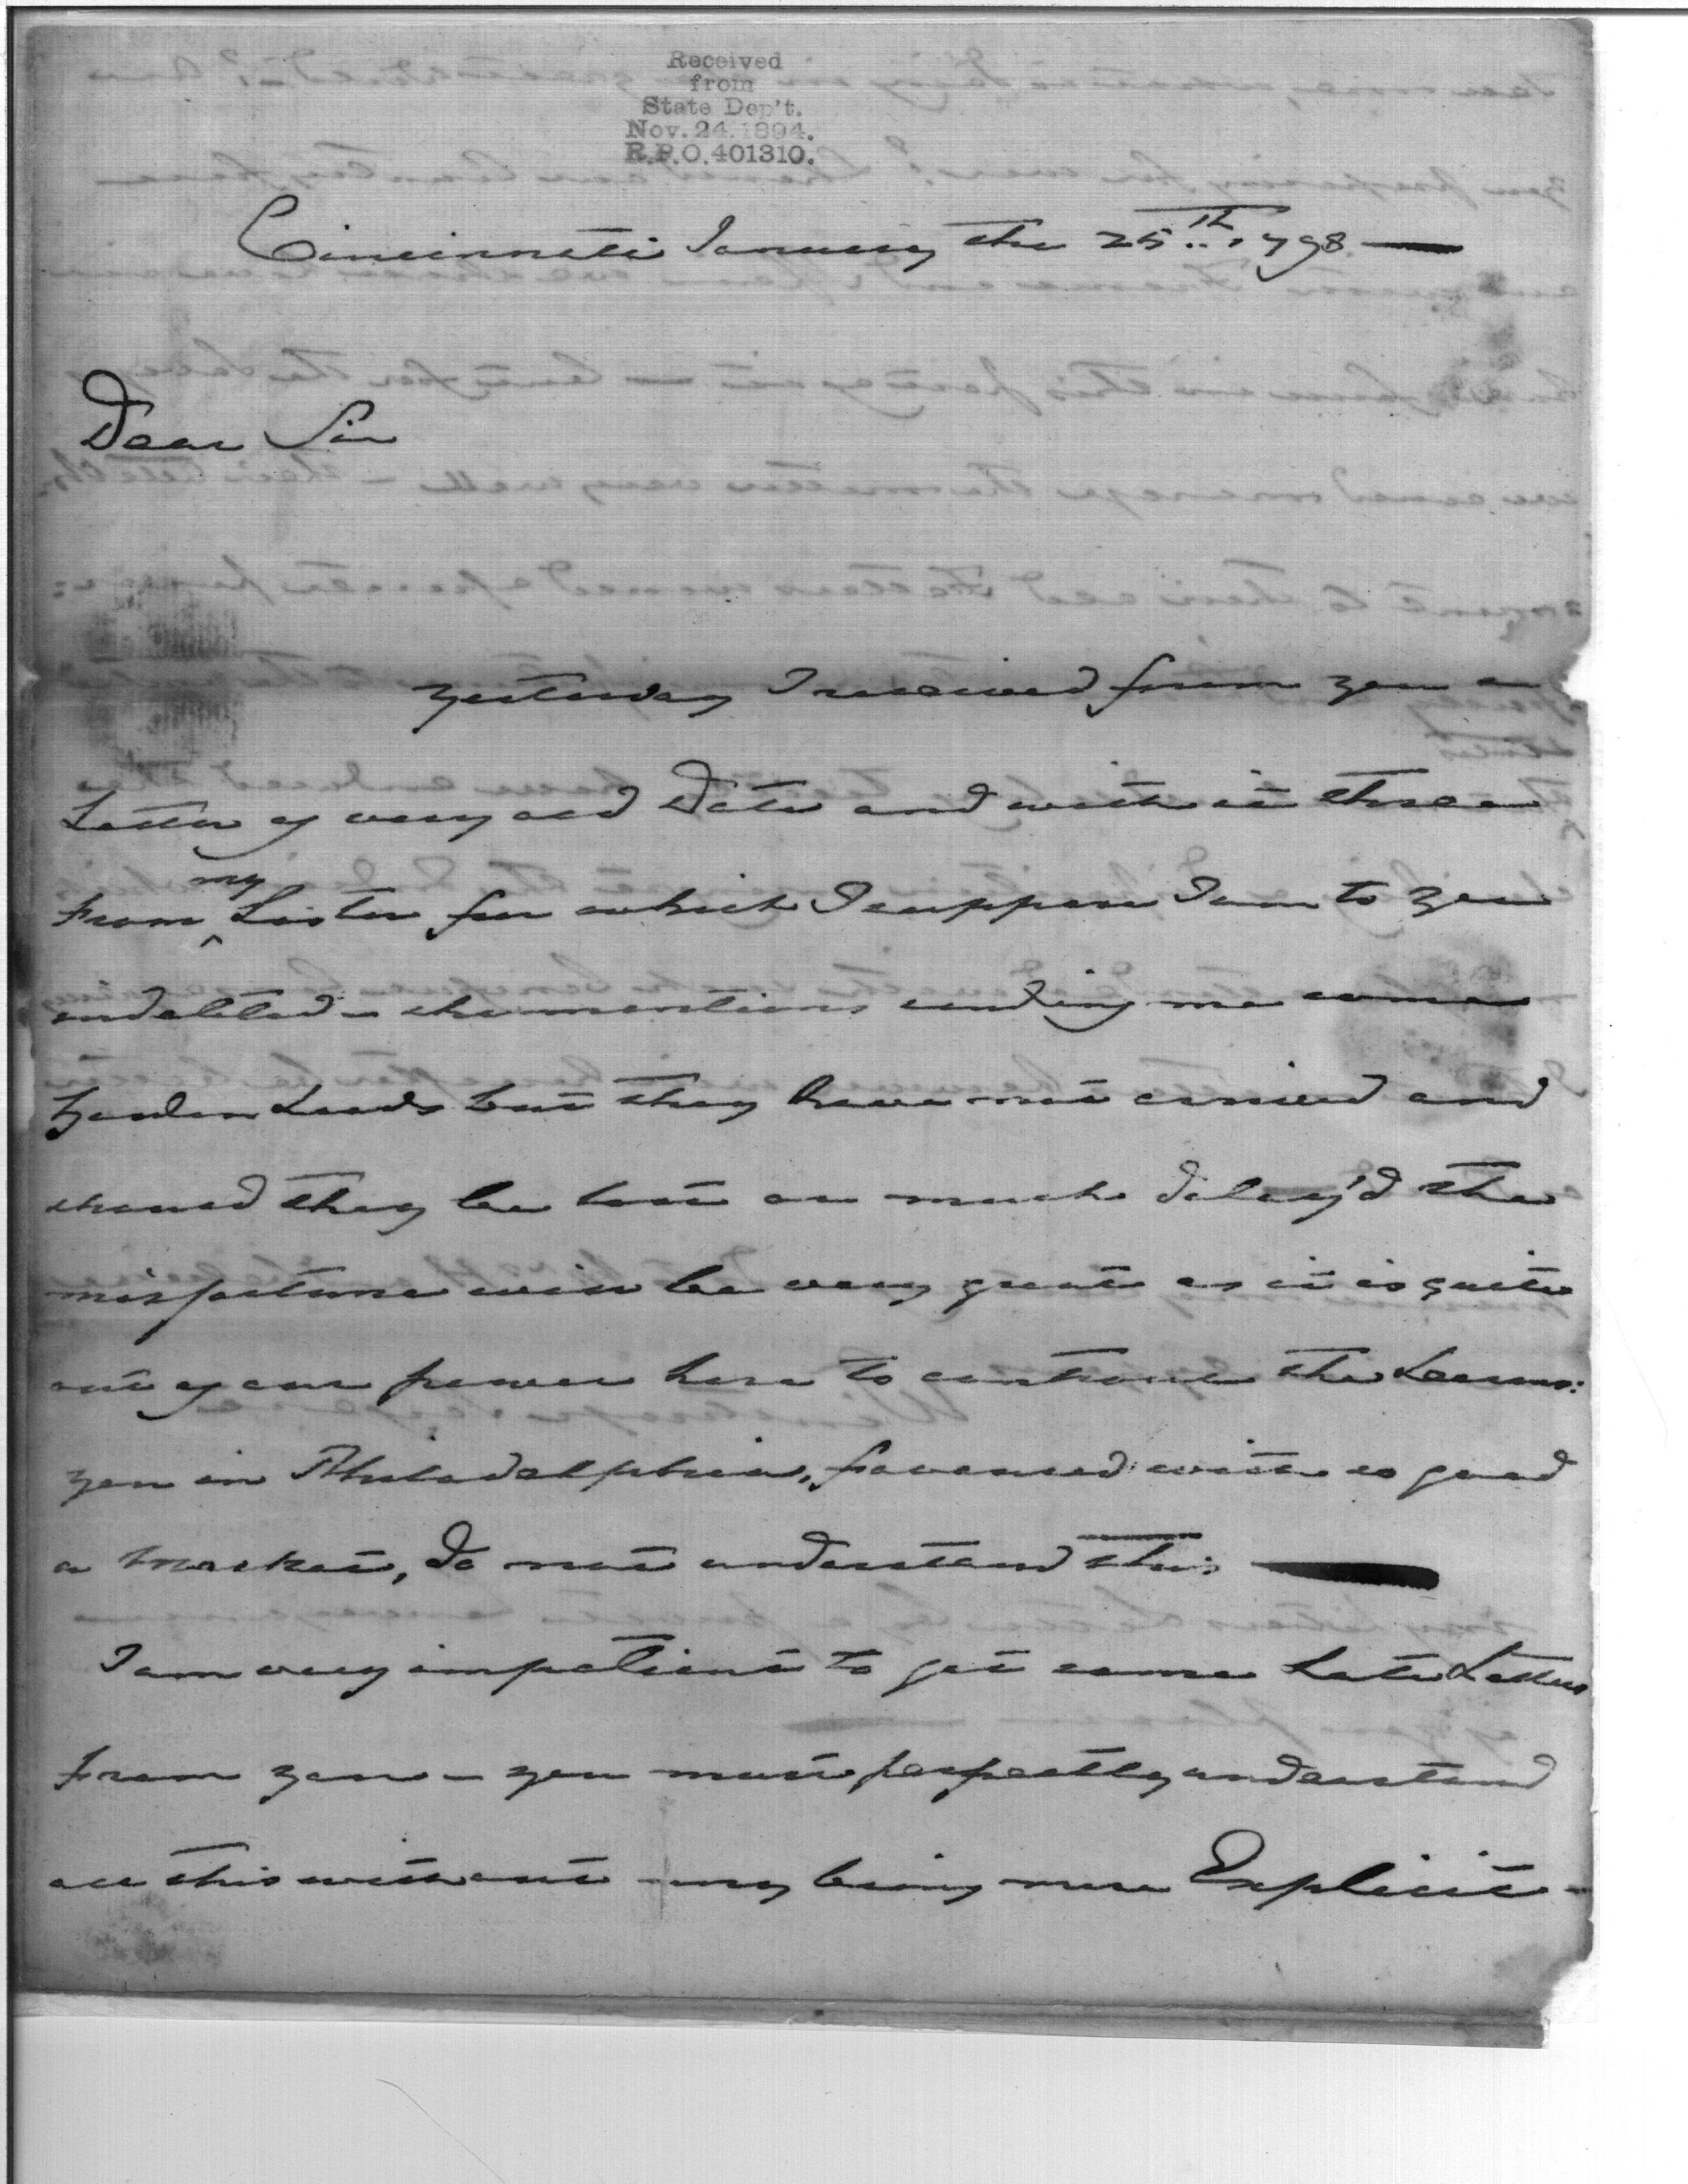 Received
from
State Dep't.
Nov. 24. 1894.
R.P.O. 401310.
Cincinnati January the 25th. 1798
Dear Sir
Yesterday I received from you a
Letter of very old Date and with it three
from my Sister for which I suppose I am to you
indebted - she mentions sending me some
Garden Seeds but they have not arrived and
should they be lost or much delay'd the
misfortune will be very great as it is quite
out of our power here to controul the Seasons:
you in Philadelphia, favoured with so good
a Market, do not understand this
I am very impatient to get some late Letters
from you - you must perfectly understand
all this without my being more Explicit -